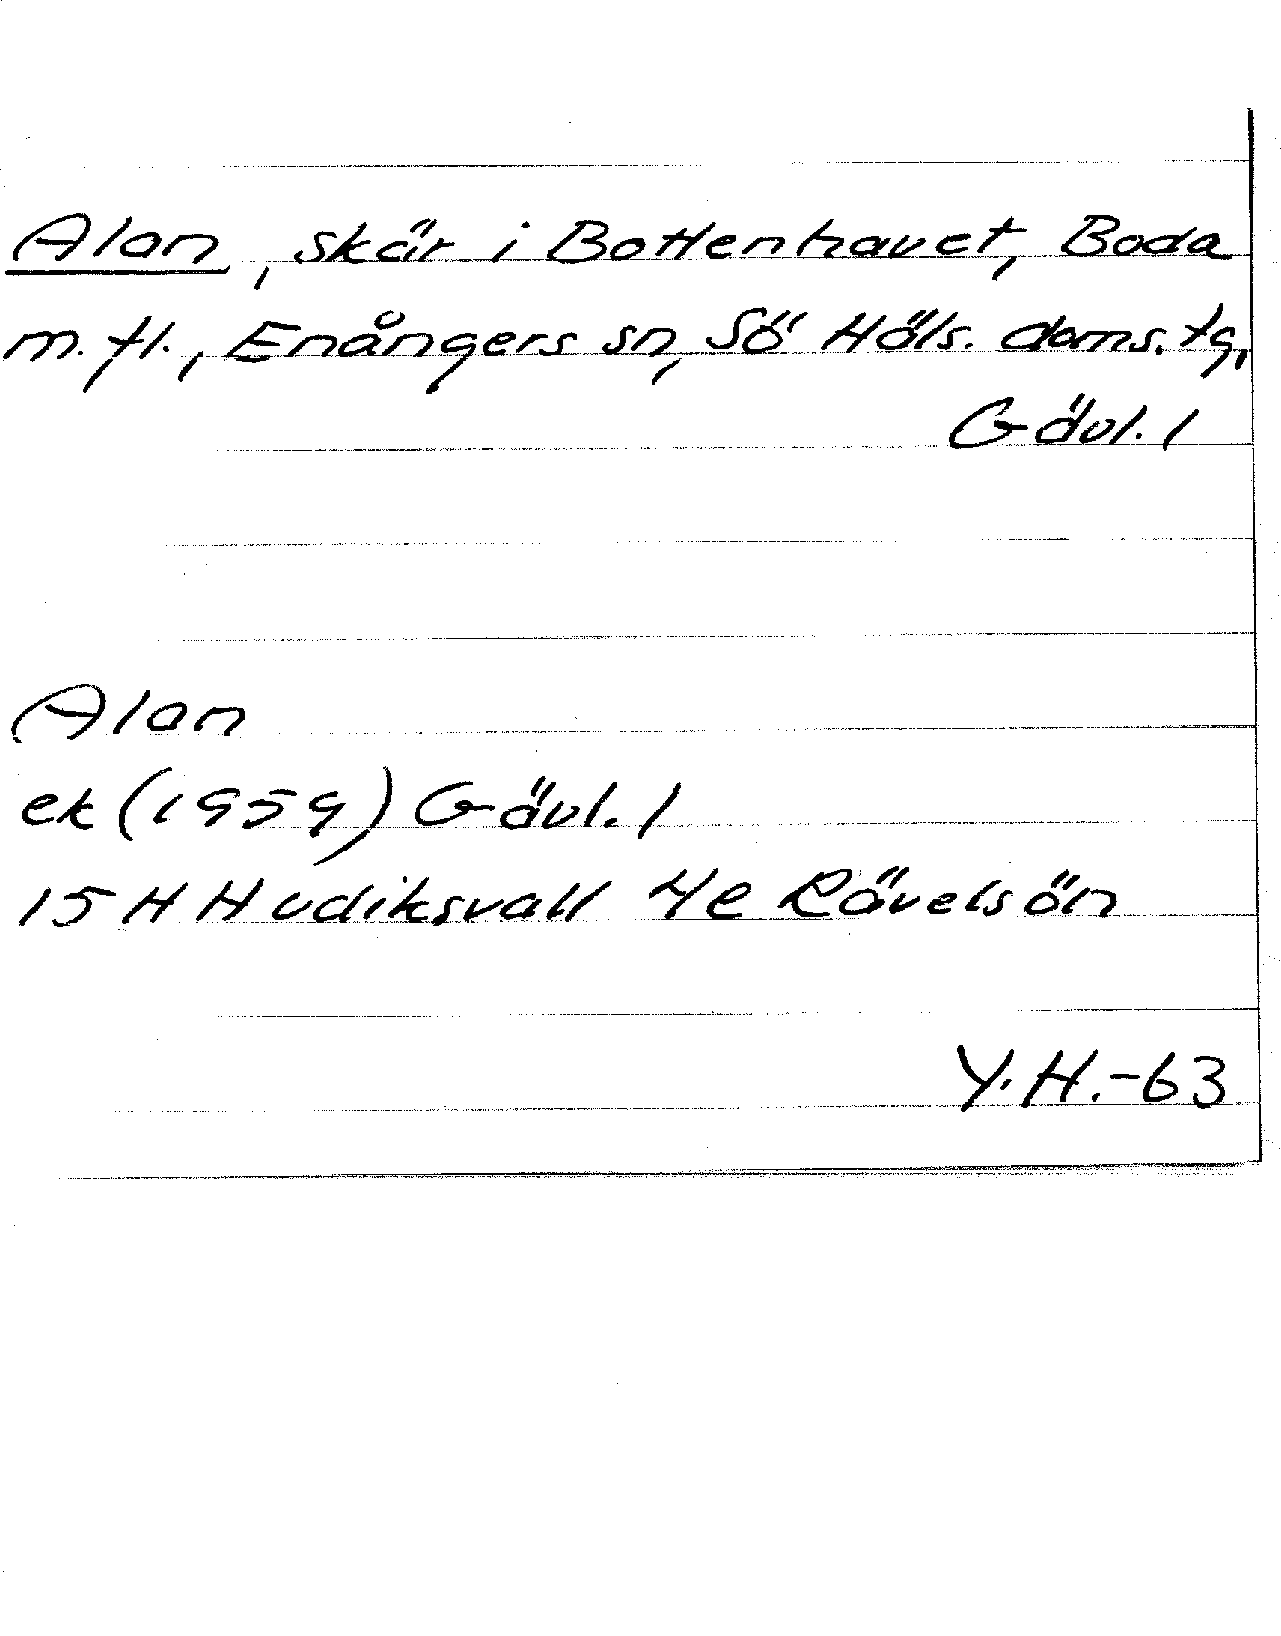 Alan, skär i Bottenhavet, Boda
m.fl., Enångers sn, Sö Häls. doms. tg,
Gävl. l
Alan
ek (1959) Gävl. l
15 H Hudiksvall 4e Rävelsön
Y.H.-63